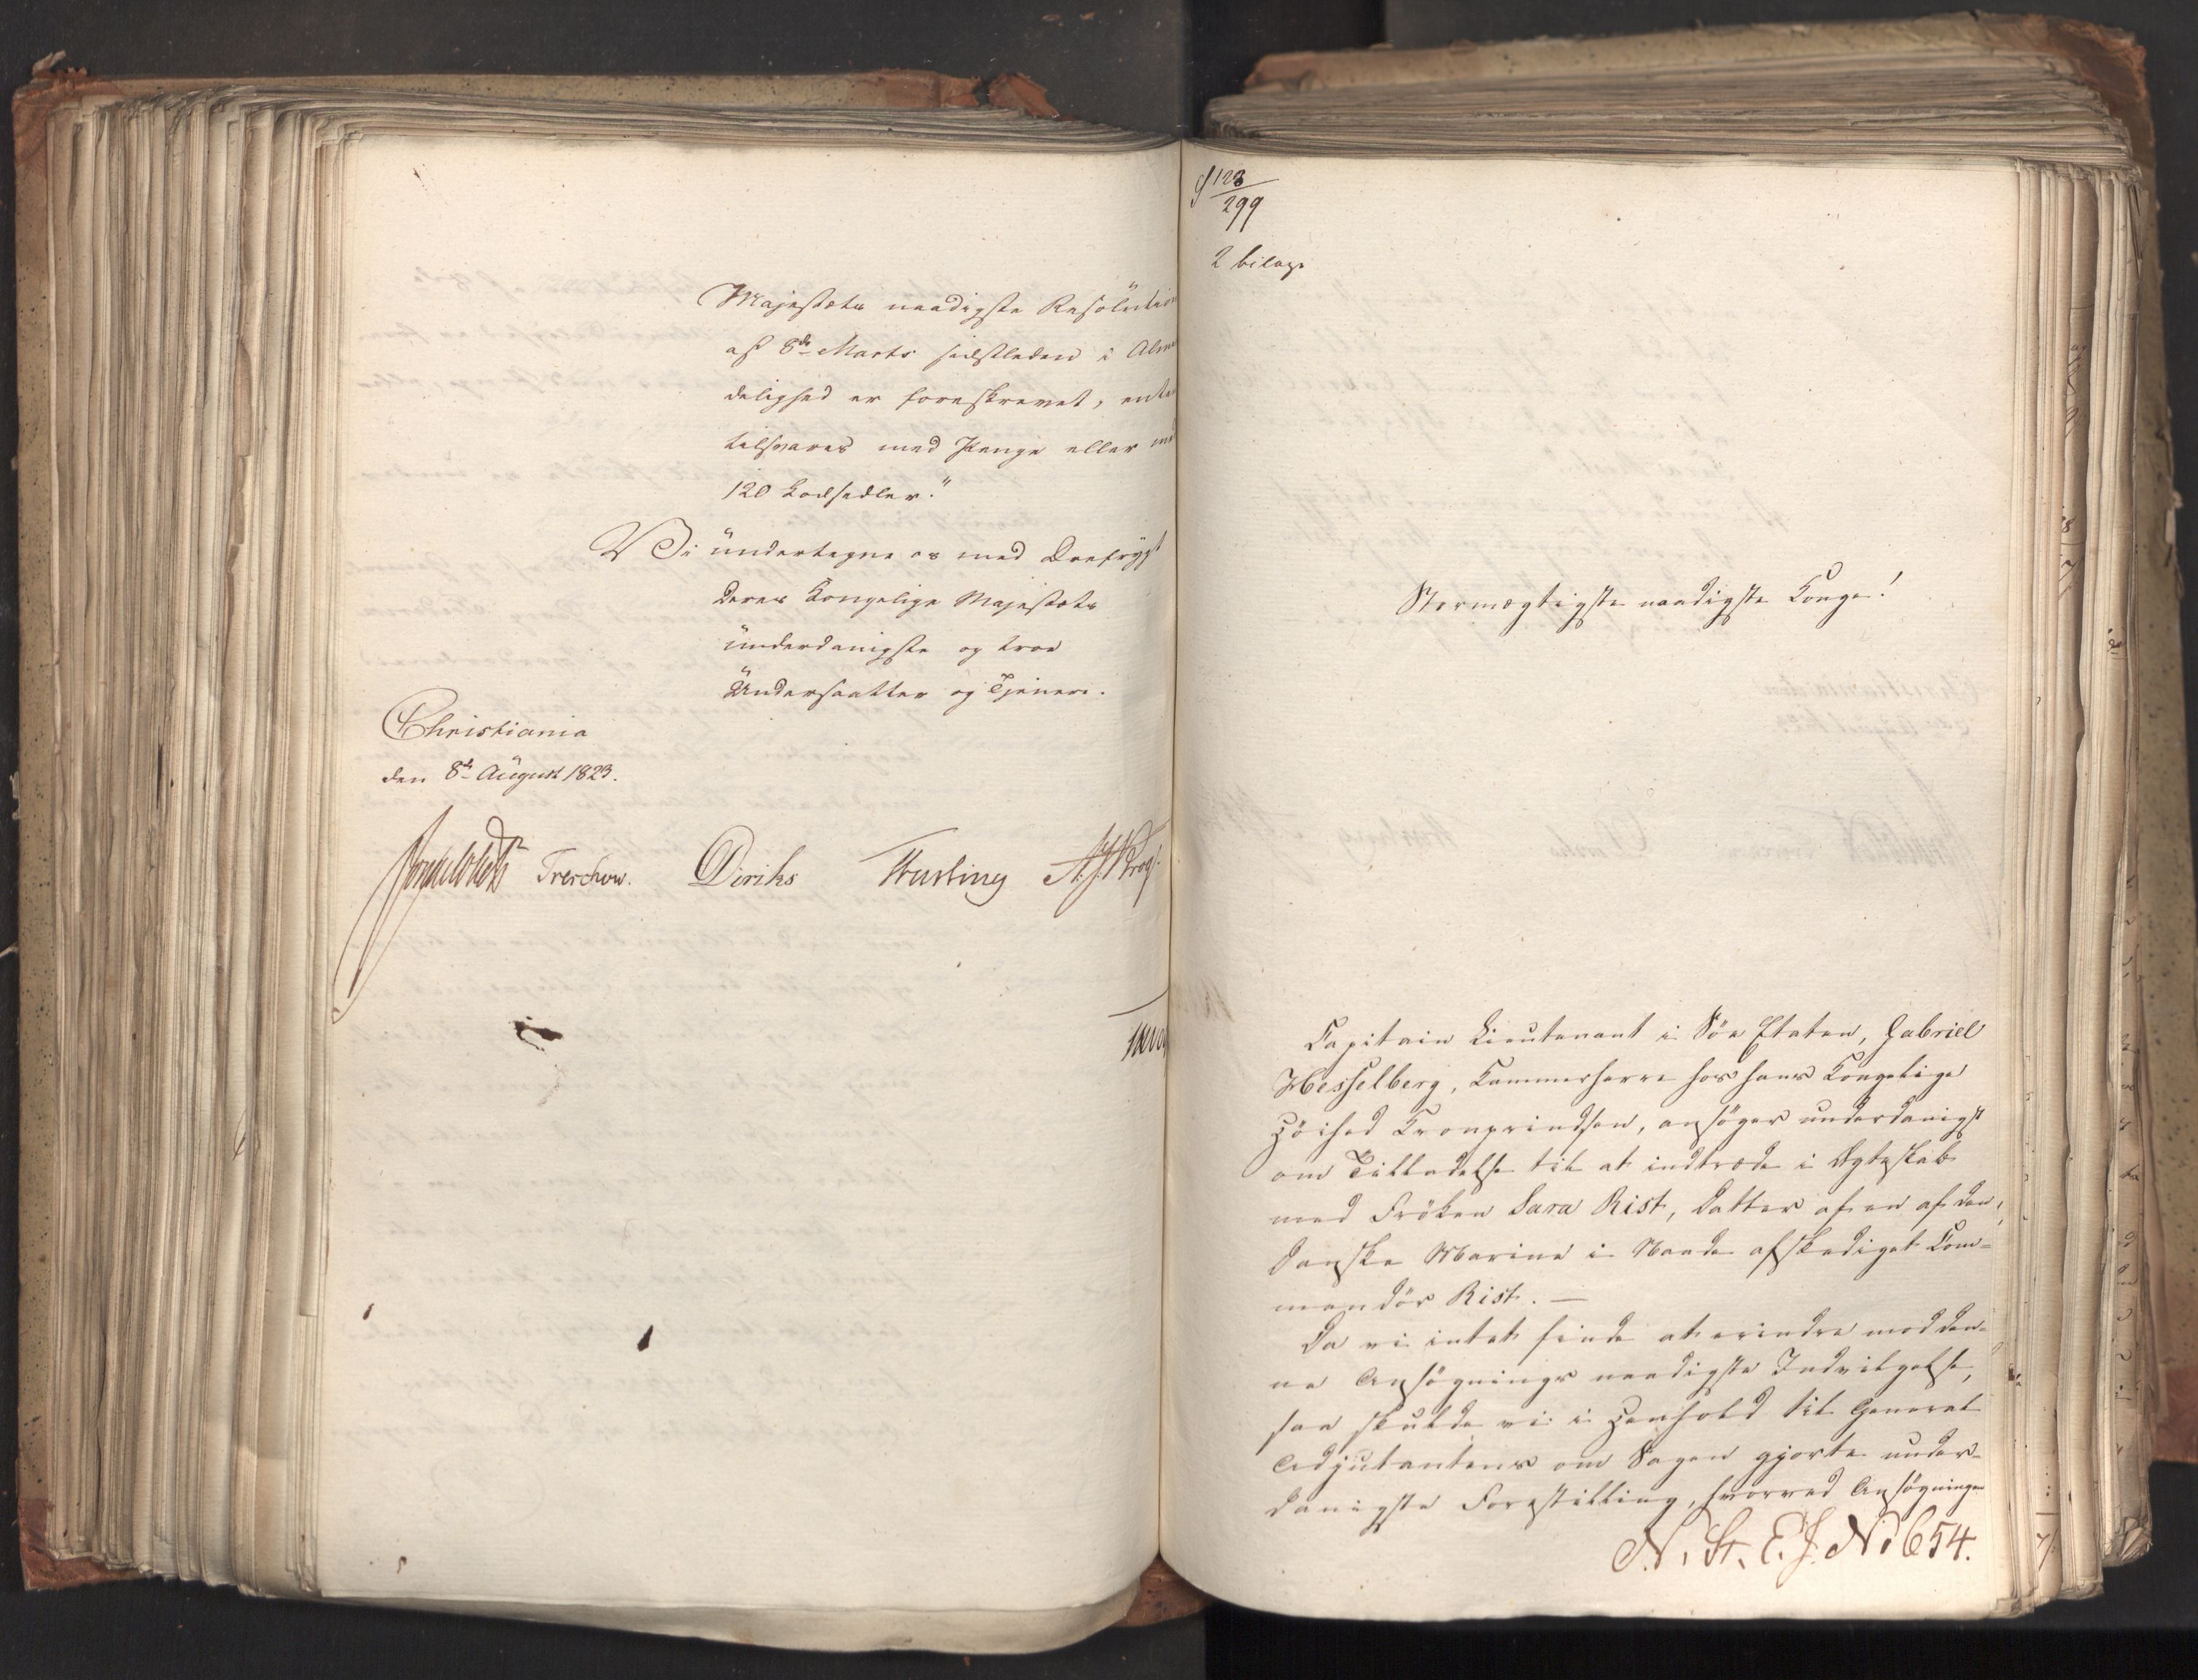 Majestæts naadigste Resolution
af 8de Marts sidstleden i Almin
delighed er foreskrevet, enten
tilsvares med Penge eller med
120 Lodsedler."
Vi undertegne os med Ærefrygt
Deres Kongelige Majestæts
underdanigste og troe
Undersaatter og Tjenere.
Christiania
den 8de August 1823.
Sommerhielm Treschow. Diriks Fasting
S 123/299
2 bilage
Stormægtigste naadigste Konge!
Capitain Lieutenant i Søe Etaten, Gabriel
Hesselberg, Kammerherre hos hans Kongelige
Høihed Kronprindsen, ansøger underdanigst
om Tilladelse til at indtræde i Ægteskab
med Frøken Sara Rist, Datter af en af den
danske Marine i Naade afskediget Com-
mandør Rist. —
Da vi intet finde at erindre mod den-
ne Ansøgnings naadigste Indvilgelse,
saa skulde vi i Henhold til General
Adjutantens om Sagen gjorte under-
danigste Forestilling, hvorved Ansøgningen
N. St. E. J. No 654.